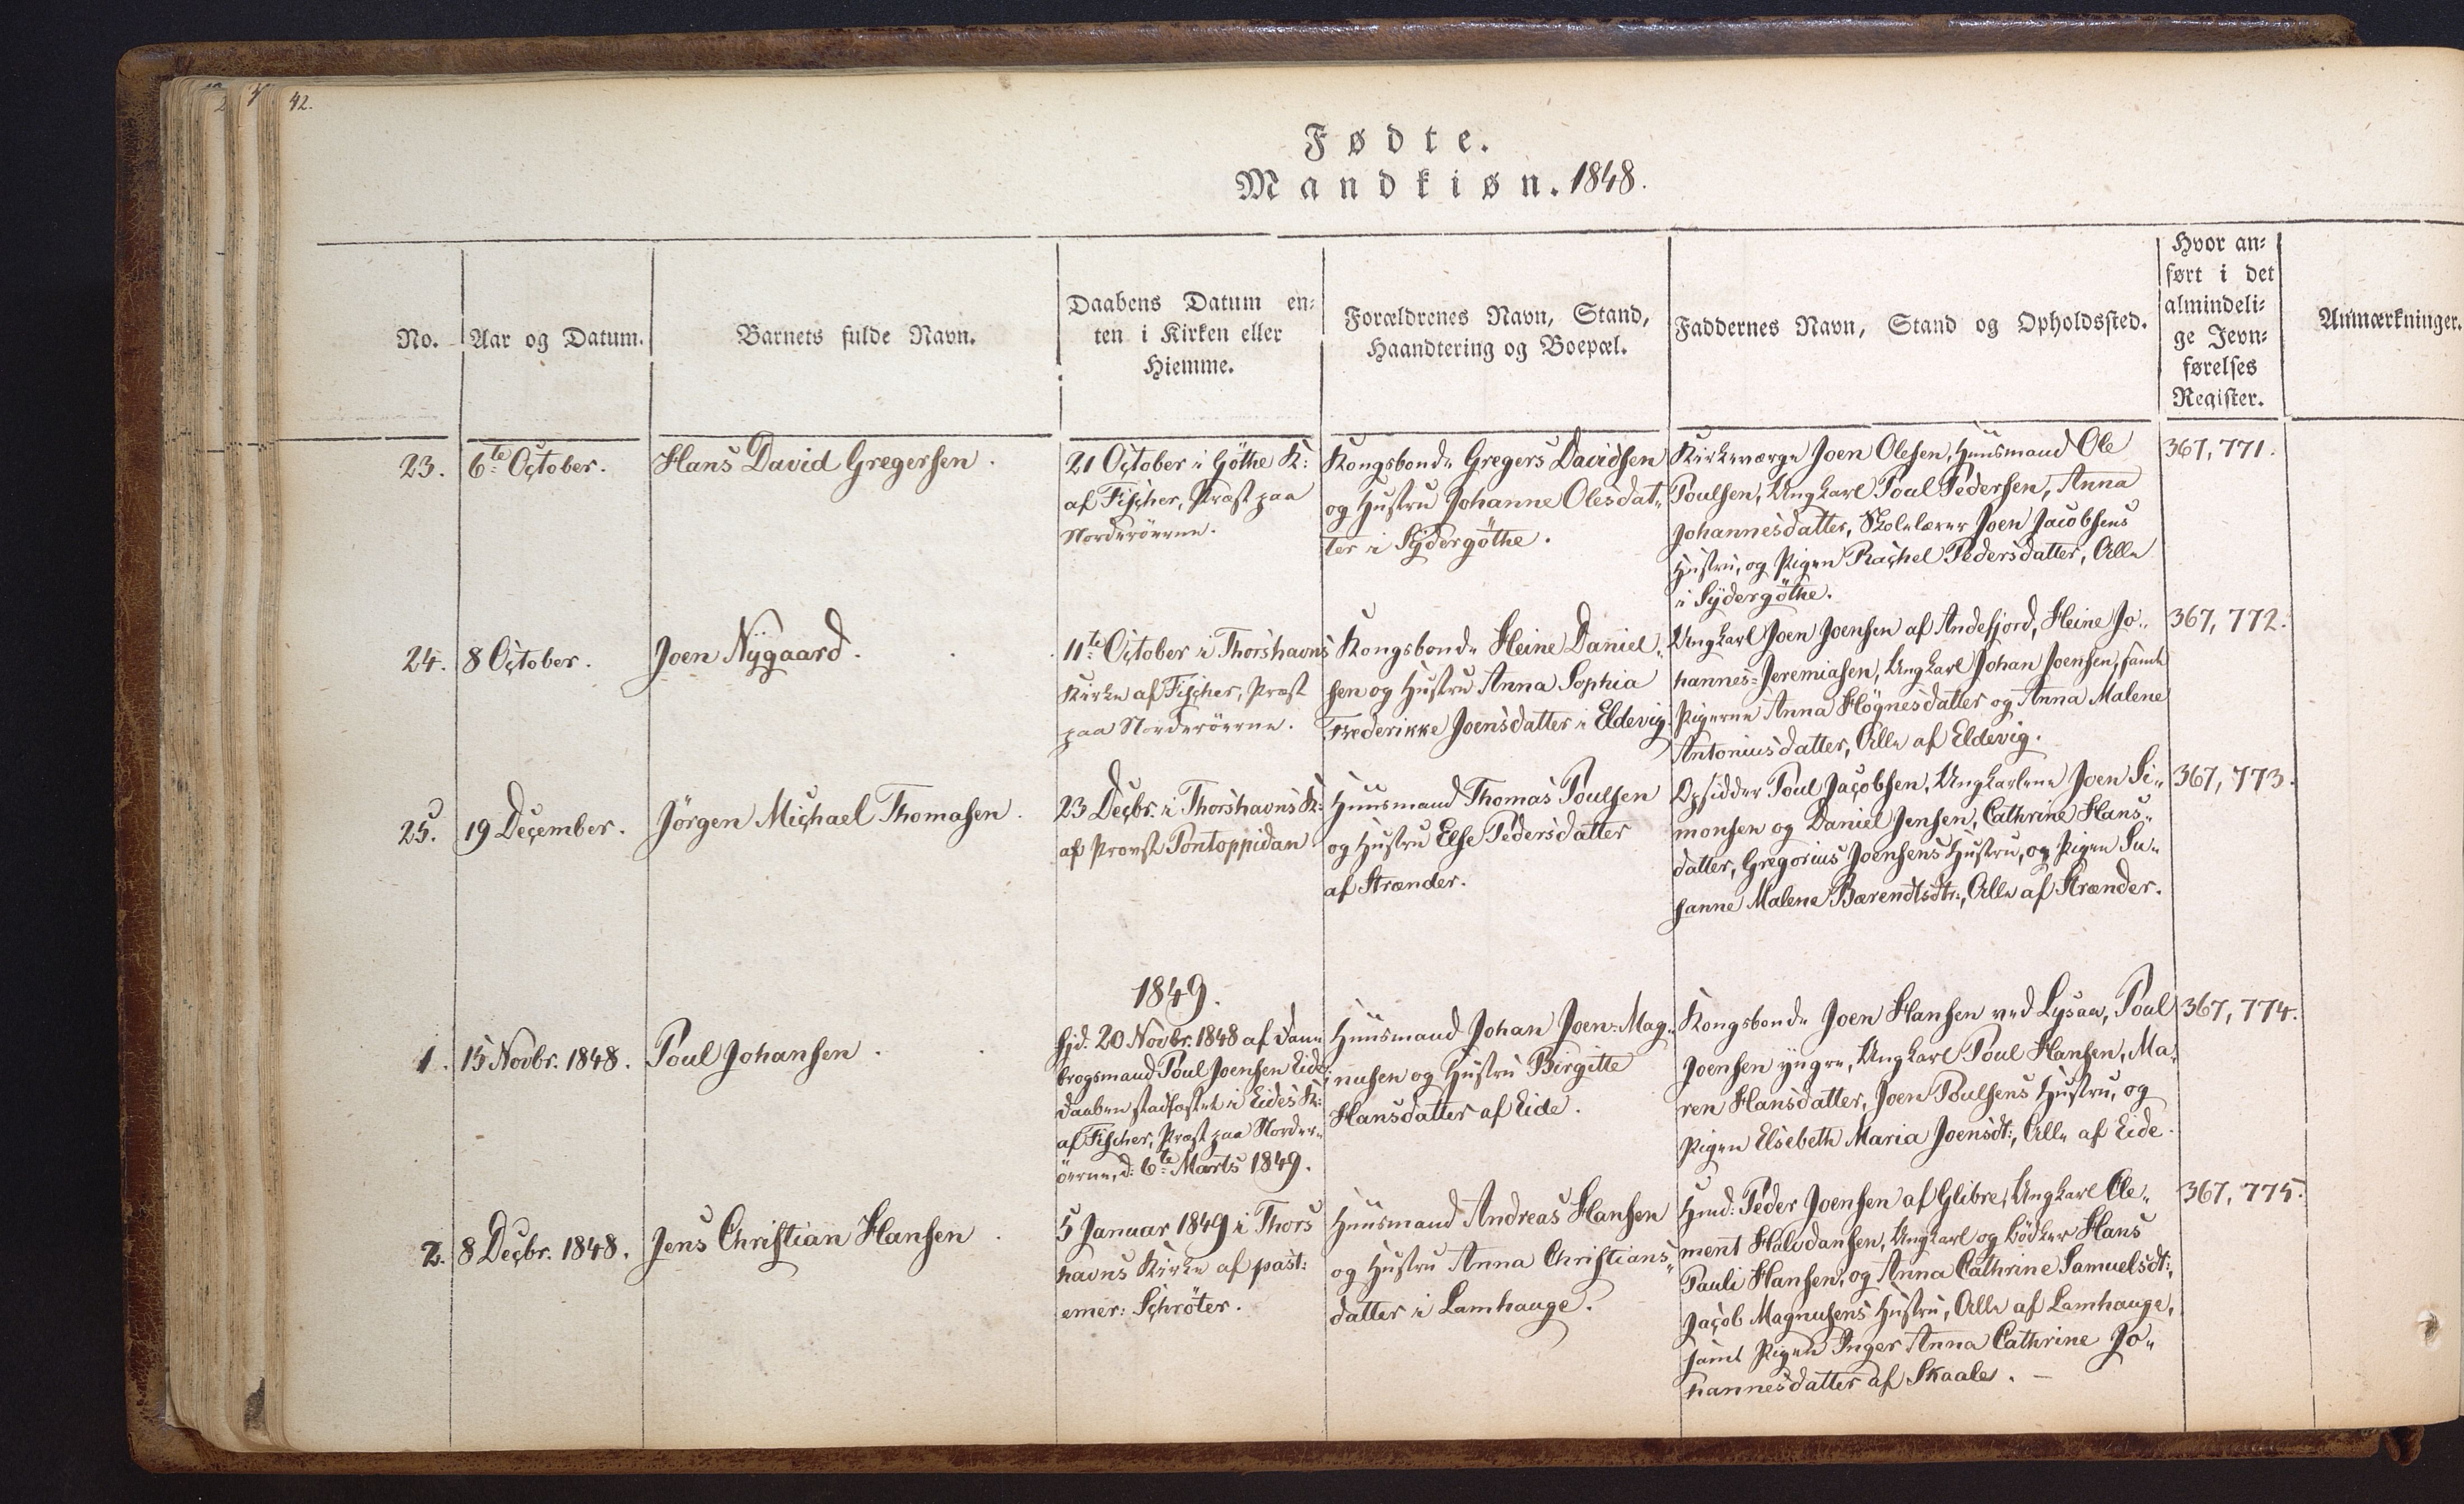 42.
Fødte.
Mandkiøn. 1848.
No.
Aar og Datum.
Barnets fulde Navn.
Daabens Datum en-
ten i Kirken eller
Hiemme.
Forældrenes Navn, Stand,
Haandtering og Boepæl.
Faddernes Navn, Stand og Opholdssted.
Hvor an-
ført i det
almindeli-
ge Jevn-
førelses
Register.
Anmærkninger.
23.
6te October.
Hans David Gregersen.
21 October i Göthe K:
af Fischer, Præst paa
Norderöerne.
Kongsbonde Gregers Davidsen
og Hustru Johanne Olesdat-
ter i Sydergöthe.
Kirkeværge Joen Olesen, Huusmand Ole
Poulsen, Ungkarl Poul Pedersen, Anna
Johannesdatter, Skolelærer Joen Jacobsens
Hustru, og Pigen Rachel Pedersdatter, Alle
i Sydergöthe.
367, 771.
24.
8 October.
Joen Nygaard.
11te October i Thorshavns
Kirke af Fischer, Præst
paa Norderöerne.
Kongsbonde Heine Daniel-
sen og Hustru Anna Sophia
Frederikke Joensdatter i Eldevig.
Ungkarl Joen Joensen af Andefjord, Heine Jo-
hannes-Jeremiasen, Ungkarl Johan Joensen, samt
Pigerne Anna Högnesdatter og Anna Malene
Antoniusdatter, Alle af Eldevig.
367, 772.
25.
19 December.
Jörgen Michael Thomasen.
23 Decbr. i Thorshavns K:
af Provst Pontoppidan
Huusmand Thomas Poulsen
og Hustru Else Pedersdatter
af Strænder.
Opsidder Poul Jacobsen, Ungkarlene Joen Si-
monsen og Daniel Jensen, Cathrine Hans-
datter, Gregorius Joensens Hustru, og Pigen Su-
sanne Malene Bærendtsdtr:, Alle af Strænder.
367, 773.
1849.
1.
15 Novbr. 1848.
Poul Johansen.
hjd. 20 Novbr. 1848 af Dane-
brogsmand Poul Joensen Eide;
Daaben stadfæstet i Eides K:
af Fischer, Præst paa Norder-
öerne, d: 6te Marts 1849.
Huusmand Johan Joen-Mag-
nusen og Hustru Birgitte
Hansdatter af Eide.
Kongsbonde Joen Hansen ved Lysaa, Poul
Joensen yngre, Ungkarl Poul Hansen, Ma-
ren Hansdatter, Joen Poulsens Hustru, og
Pigen Elsebeth Maria Joensdt:, Alle af Eide.
367, 774.
2.
8 Decbr. 1848.
Jens Christian Hansen.
5 Januar 1849 i Thors
havns Kirke af past:
emer: Schröter.
Huusmand Andreas Hansen
og Hustru Anna Christians-
datter i Lamhauge.
Hmd: Peder Joensen af Glibre, Ungkarl Cle-
ment Halvdansen, Ungkarl og Bödker Hans
Pauli Hansen, og Anna Cathrine Samuelsdt:,
Jacob Magnusens Hustru, Alle af Lamhauge,
samt Pigen Inger Anna Cathrine Jo-
hannesdatter af Skaale. –
367, 775.